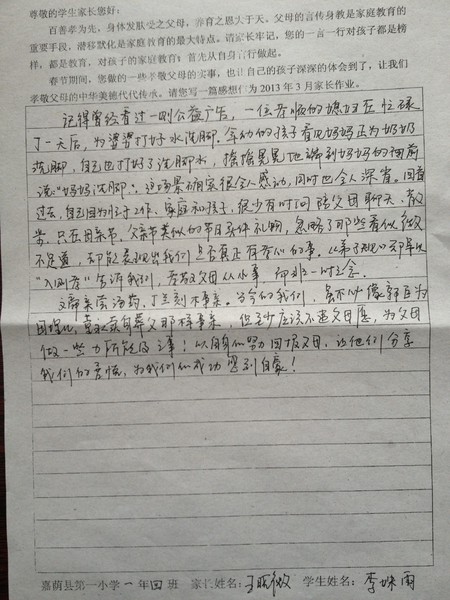 尊敬的学生家长您好：
百善孝为先，身体发肤受之父母，养育之恩大于天。父母的言传身教是家庭教育的
重要手段，潜移默化是家庭教育的最大特点。请家长牢记，您的一言一行对孩子都是榜
样，都是教育，对孩子的家庭教育：首先从自身言行做起。
春节期间，您做的一些孝敬父母的实事，也让自己的孩子深深的体会到了，让我们
孝敬父母的中华美德代代传承。请您写一篇感想作为 2013 年 3 月家长作业。
记得曾经看过一则公益广告，一位孝顺的媳妇在忙碌
了一天后，为婆婆打好水洗脚。年幼的孩子看见妈妈正为奶奶
洗脚，自己也打好了洗脚水，摇摇晃晃地端到妈妈的面前
说：“妈妈洗脚”。这场景确实很令人感动，同时也令人深省。回首
过去，自己因为忙于工作、家庭和孩子，很少有时间陪父母聊天、散
步。只在母亲节、父亲节类似的节日买件礼物，忽略了那些看似微
不足道，却能表现出我们是否真正有孝心的事。《弟子规》
“入则孝”告诉我们，孝敬父母从小事 而非一时之念。
文帝亲尝汤药，丁兰刻木事亲。当今的我们，虽不必像郭巨为
母埋儿， 那样事亲，但至少应该不违父母愿，为父母
做一些力所能及之事！以自身的努力回报父母，让他们分享
我们的喜悦，为我们的成功感到自豪！
嘉荫县第一小学 一年四班 家长姓名： 学生姓名：李姝雨